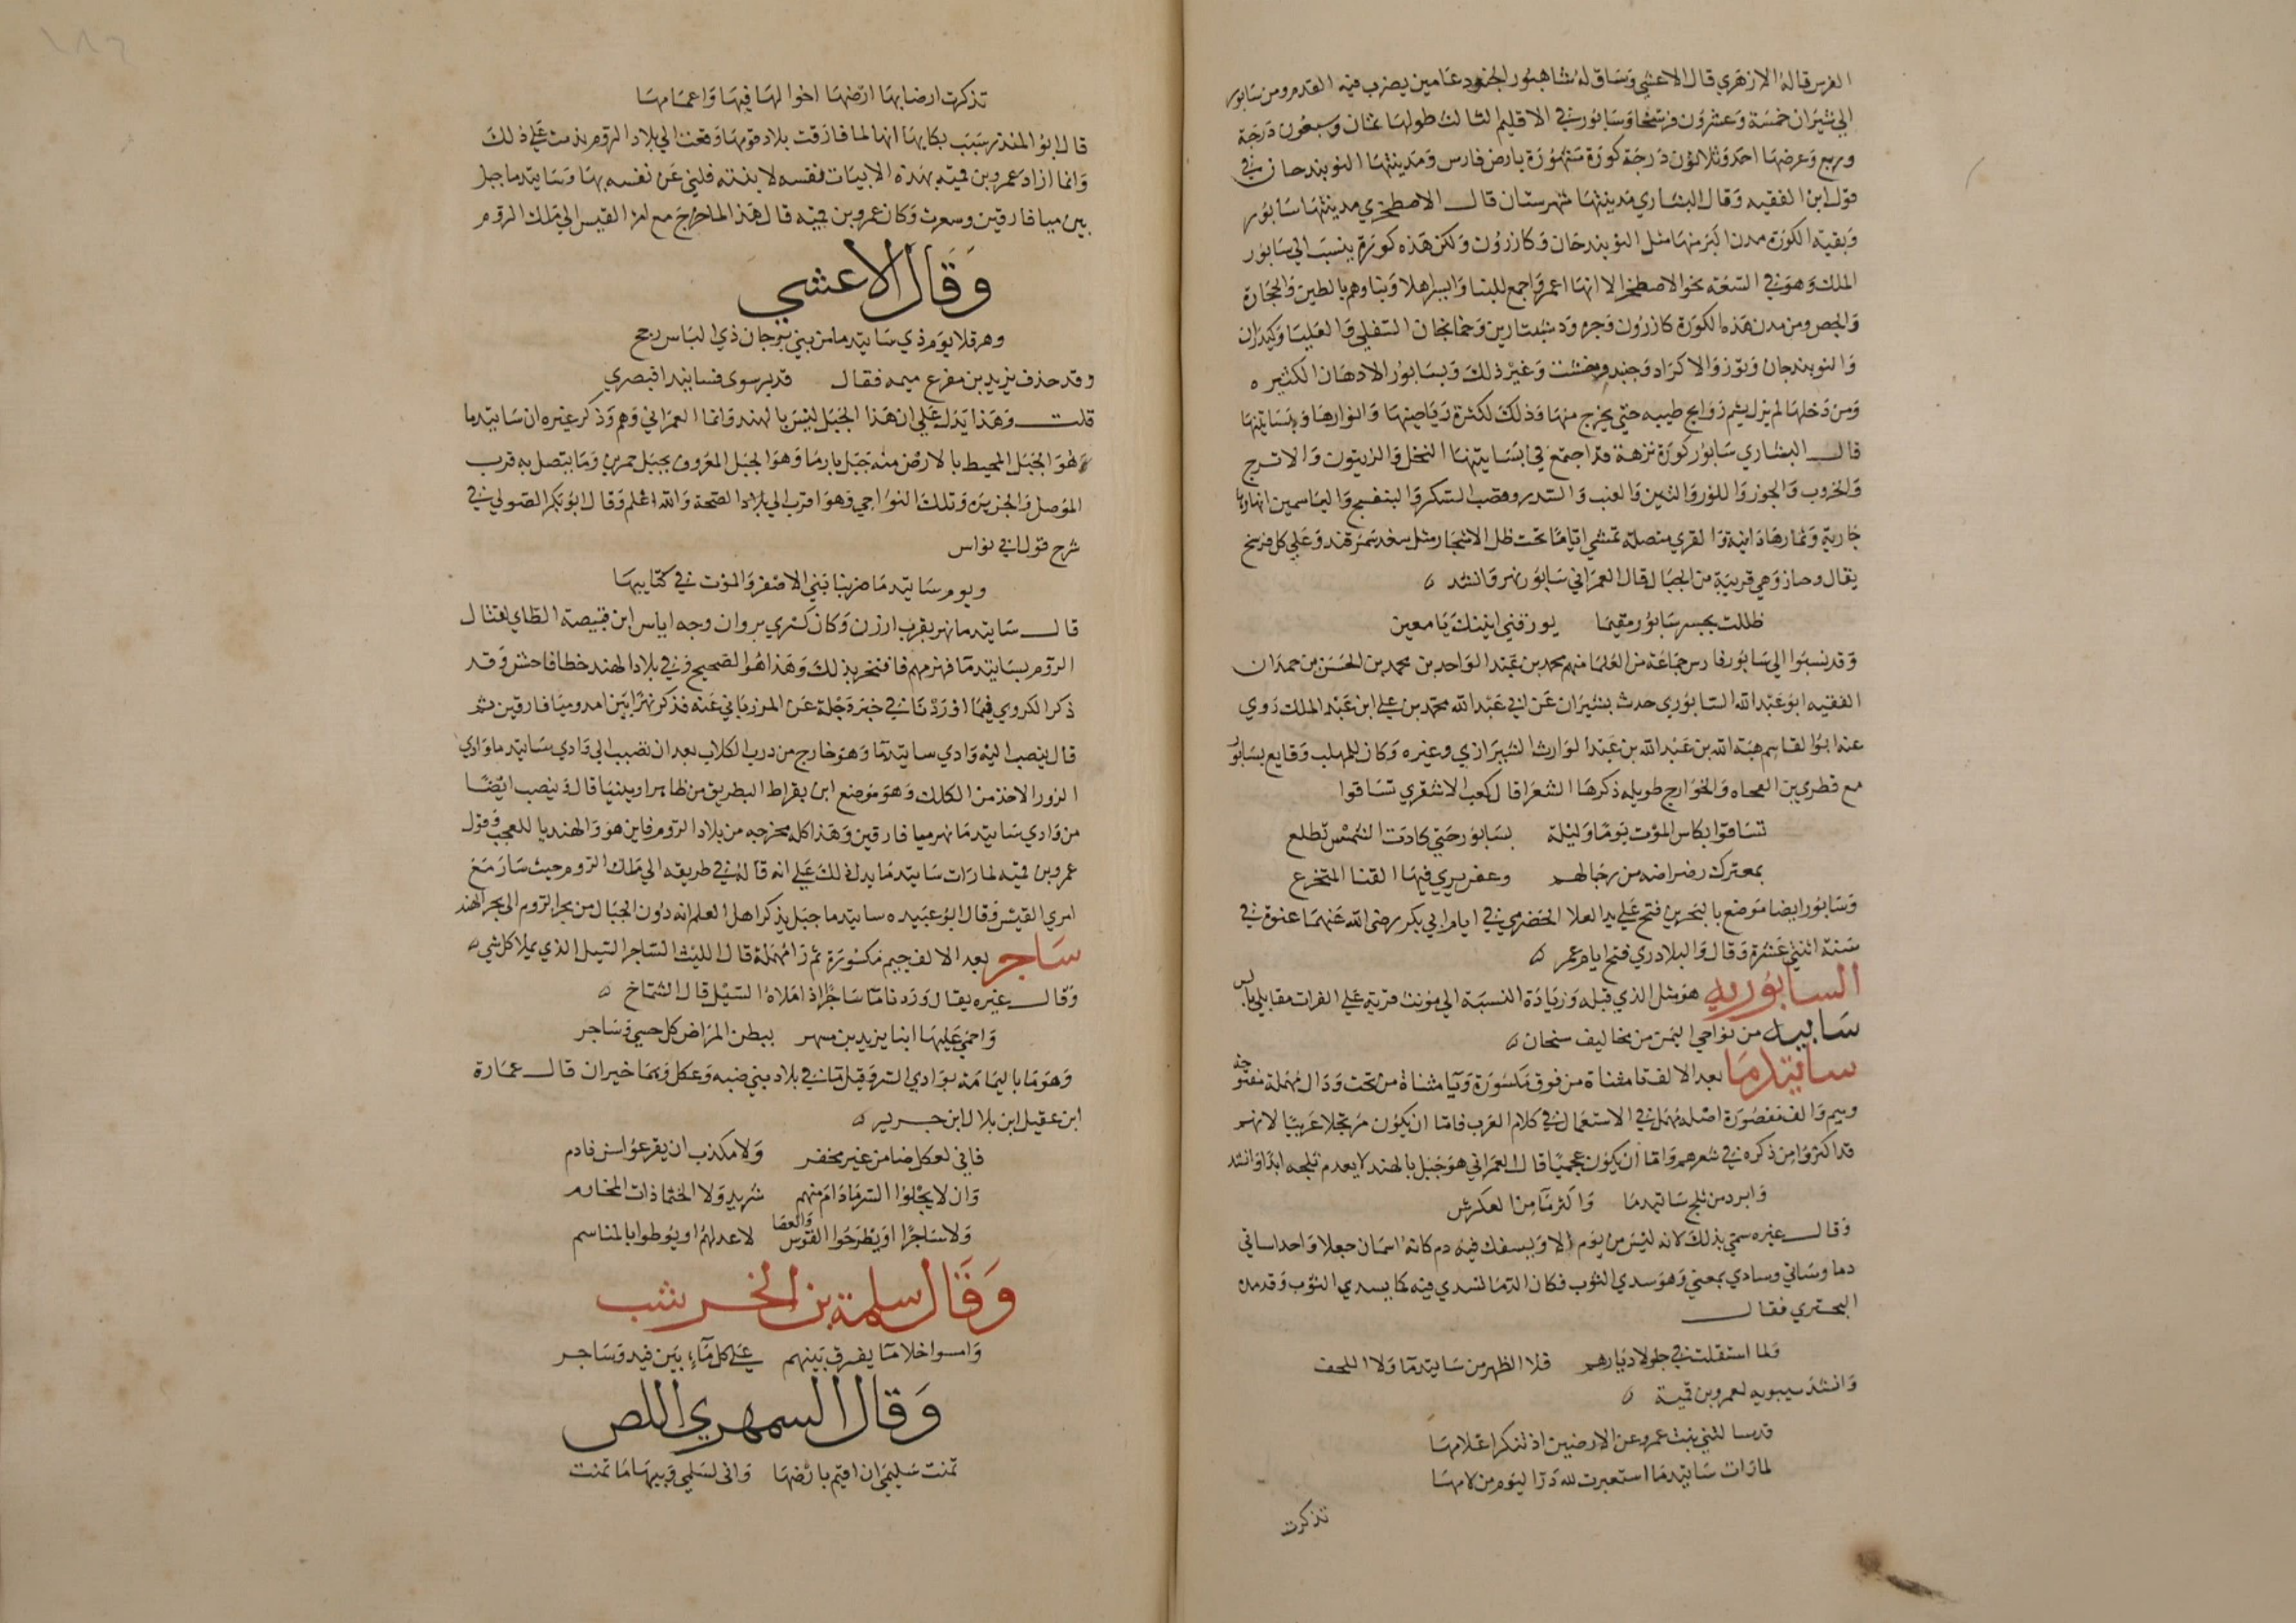 الفرس قاله الازهري قال الاعشي وساق له شاهبور الجنود عامين يضرب فيه القدم ومن سابور
الي شيران خمسة وعشرون فرسخا وسابور في الاقليم الثالث طولها ثمان وسبعون درجة
وربع وعرضها احد وثلاثون درجة كورة مشهورة بارض فارس ومدينتها النوبندجان في
قول ابن الفقيه وقال البشاري مدينتها شهرستان قال الاصطخري مدينتها سابور
وبقية الكورة مدن اكبر منها مثل النوبندجان وكازرون ولكن هذه كورة ينسب الي سابور
الملك وهو في السعة نحو الاصطخر الا انها اعمر واجمع للبنا وايسر اهلا وبناوهم بالطين والحجارة
والجص ومن مدن هذه الكورة كازرون وجره ودشتبارين وخمايجان السفلي والعليا وكيدران
والنوبندجان وتوز والاكراد وجنبد وخشت وغير ذلك وبسابور الادهان الكثيره
ومن دخلها لم يزل يشم روايح طيبه حتي يخرج منها وذلك لكثرة رياحينها وانوارها وبساتينها
قال البشاري سابور كورة نزهة قد اجتمع في بساتينها النخل والزيتون والاترج
والخروب والجوز واللوز والتين والعنب والسدر وقصب السكر والبنفسج والياسمين انهارها
جارية وثمارها دانية والقري متصلة تمشي اياما تحت ظل الاشجار مثل سغد سمرقند وعلي كل فرسخ
بقال وخباز وهي قريبة من الجبال قال العمراني سابور نهر وانشد ه
ظللت بجسر سابور مقيما يورقني انينك يا معين
وقد نسبوا الي سابور فارس جماعة من العلما منهم محمد بن عبد الواحد بن محمد بن الحسن بن حمدان
الفقيه ابو عبد الله السابوري حدث بشيران عن ابي عبد الله محمد بن علي ابن عبد الملك روي
عنه ابو القاسم هبة الله بن عبد الله بن عبد الوارث الشيرازي وغيره وكان للمهلب وقايع بسابور
مع قطري بن الفجاه والخوارج طويله ذكرها الشعرا قال كعب الاشقري تساقوا
تساقوا بكاس الموت يوما وليلة بسابور حتي كادت الشمس تطلع
بمعترك رضراضه من رحالهم وعفر يري فيها القنا المتخرع
وسابور ايضا موضع بالبحرين فتح علي يد العلا الحضرمي في ايام ابي بكر رضي الله عنهما عنوة في
سنة اثنتي عشرة وقال والبلادري فتح ايام عمر ه
السابوريه هو مثل الذي قبله وزيادة النسبة الي مونث قرية علي الفرات مقابل بالس
سابيه من نواحي اليمن من مخاليف سنحان ه
ساتيدما بعد الالف تا مثناة من فوق مكسورة ويا مثناة من تحت ودال مهملة مفتوحه
وميم والف مقصورة اصله مهمل في الاستعمال في كلام العرب فاما ان يكون مرتجلا عربيا لانهم
قد اكثروا من ذكره في شعرهم واما ان يكون عجميا قال العمراني هو جبل بالهند لا يعدم ثلجه ابدا وانشد
وابرد من ثلج ساتيدما واكثر ما من العكرش
وقال غيره سمي بذلك لانه ليس من يوم الا ويسفك فيه دم كانه اسمان جعلا واحدا ساتي
دما وساتي وسادي بمعني وهو سدي الثوب فكان الدما تسدي فيه كما يسدي الثوب وقد مده
البحتري فقال
ولما استقلت في جلولا ديارهم فلا الظهر من ساتيدما ولا اللحف
وانشد سيبويه لعمرو بن قميه ه
قد سالتني بنت عمرو عن الارضين اذ تنكر اعلامها
لما رات ساتيدما استعبرت لله در اليوم من لامها
تذكرت
تذكرت ارضا بها ارضها اخوالها فيها واعمامها
قال ابو المنذر سبب بكايها انها لما فارقت بلاد قومها وقعت الي بلاد الروم ندمت علي ذلك
وانما اراد عمرو بن قميه بهذه الابيات نفسه لا بنته فكني عن نفسه بها وساتيدما جبل
بين ميافارقين وسعرت وكان عمرو بن قميه قال هذا لما خرج مع امر القيس الي ملك الروم
وقال الاعشي
وهرقلا يوم ذي ساتيدما من بني برجان ذي الباس رجح
وقد حذف يزيد بن مفرغ ميمه فقال قد ير سوي فساتيدا فبصري
قلت وهذا يدل علي ان هذا الجبل ليس بالهند وانما العمراني وهم وذكر غيره ان ساتيدما
هو الجبل المحيط بالارض منه جبل بارما وهو الجبل المعروف بجبل حمرين وما يتصل به قرب
الموصل والجزيره وتلك النواحي وهو اقرب الي بلاد الصحة والله اعلم وقال ابو بكر الصولي في
شرح قول ابي نواس
ويوم ساتيدما ضربنا بني الاصفر والموت في كتايبها
قال ساتيدما نهر بقرب ارزن وكان كسري بروان وجه اياس ابن قبيصة الطاي لقتال
الروم بساتيدما فهزمهم فافتخر بذلك وهذا هو الصحيح وفي بلاد الهند خطا فاحش وقد
ذكر الكروي فيما اوردنا في خبر دجلة عن المرزباني عنه فذكر نهرا بين امد وميافارقين ثم
قال ينصب اليه وادي ساتيدما وهو خارج من درب الكلاب بعد ان نصبب الي وادي ساتيدما وادي
الزور الاخذ من الكلك وهو موضع ابن بقراط البطريق من ظاهر ارمينيا قال وينصب ايضا
من وادي ساتيدما نهر ميافارقين وهذا كله مخرجه من بلاد الروم فاين هو والهند يا للعجب وقول
عمرو بن قميه لما رات ساتيدما يدل ذلك علي انه قاله في طريقه الي ملك الروم حيث سار مع
امري القيس وقال ابو عبيده ساتيدما جبل يذكر اهل العلم انه دون الجبال من بحر الروم الي بحر الهند
ساجر بعد الالف جيم مكسورة ثم را مهملة قال الليث الساجر السيل الذي يملا كل شي ه
وقال غيره يقال وردنا ما ساجرا اذا املاه السيل قال الشماخ ه
واحمي عليها ابنا يزيد بن مسهر ببطن المراض كل حسي وساجر
وهو ما باليمامة بوادي السر وقيل ما في بلاد بني ضبه وعكل وهما خيران قال عمارة
ابن عقيل ابن بلال ابن جرير ه
فاني لعكل ضامن غير مخفر ولا مكذب ان يقرعوا سن نادم
وان لا يحلوا السر ما دام منهم شريد ولا الخثما ذات المخارم
ولا ساجرا او يطرحوا القوس والعصا لاعدلهم او يوطوا بالمناسم
وقال سلمة بن الخرشب
وامسوا خلا ما يفرق بينهم علي كل ماء بين فيد وساجر
وقال السمهري اللص
تمنت سليمي ان اقيم بارضها واني لسلمي ويبها ما تمنت